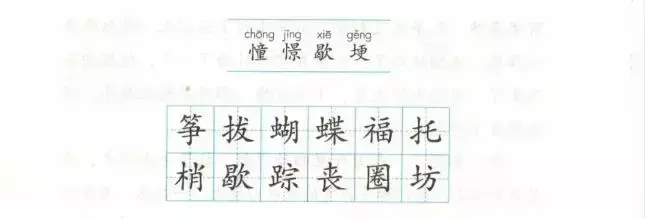 chōng jǐng xiē gěng
憧憬歇埂
筝拔蝴蝶福托
梢歇踪丧圈坊